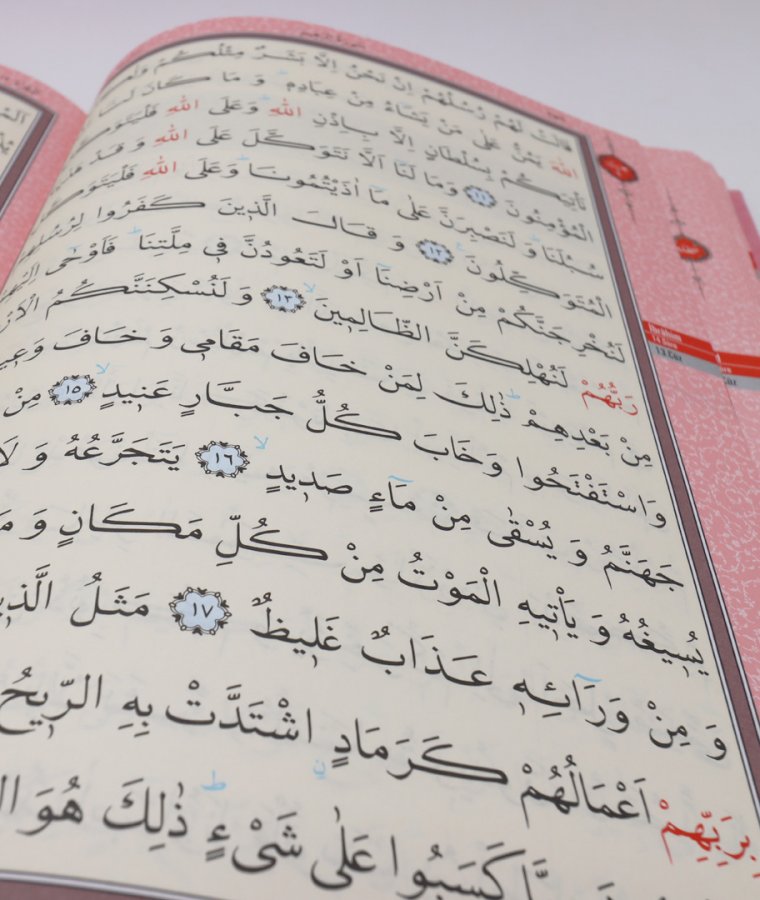 سورة ابرهيم
قَالَتْ لَهُمْ رُسُلُهُمْ اِنْ نَحْنُ اِلَّا بَشَرٌ مِثْلُكُمْ
اللّٰهَ يَمُنُّ عَلٰى مَنْ يَشَٓاءُ مِنْ عِبَادِه۪ وَمَا كَانَ لَنَٓا
نَأْتِيَكُمْ بِسُلْطَانٍ اِلَّا بِاِذْنِ اللّٰهِ وَعَلَى اللّٰهِ
الْمُؤْمِنُونَ ﴿١١﴾ وَمَا لَنَٓا اَلَّا نَتَوَكَّلَ عَلَى اللّٰهِ وَقَدْ
سُبُلَنَا وَلَنَصْبِرَنَّ عَلٰى مَٓا اٰذَيْتُمُونَا وَعَلَى اللّٰهِ
الْمُتَوَكِّلُونَ ﴿١٢﴾ وَقَالَ الَّذ۪ينَ كَفَرُوا
لَنُخْرِجَنَّكُمْ مِنْ اَرْضِنَٓا اَوْ لَتَعُودُنَّ ف۪ي مِلَّتِنَا فَاَوْحٰٓى
رَبُّهُمْ لَنُهْلِكَنَّ الظَّالِم۪ينَ ﴿١٣﴾ وَلَنُسْكِنَنَّكُمُ
مِنْ بَعْدِهِمْ ذٰلِكَ لِمَنْ خَافَ مَقَام۪ي وَخَافَ
وَاسْتَفْتَحُوا وَخَابَ كُلُّ جَبَّارٍ عَن۪يدٍ ﴿١٥﴾ مِنْ
جَهَنَّمُ وَيُسْقٰى مِنْ مَٓاءٍ صَد۪يدٍ ﴿١٦﴾ يَتَجَرَّعُهُ وَلَا
يُس۪يغُهُ وَيَأْت۪يهِ الْمَوْتُ مِنْ كُلِّ مَكَانٍ وَمَا
وَمِنْ وَرَٓائِه۪ عَذَابٌ غَل۪يظٌ ﴿١٧﴾ مَثَلُ الَّذ۪ينَ
بِرَبِّهِمْ اَعْمَالُهُمْ كَرَمَادٍ اشْتَدَّتْ بِهِ الرّ۪يحُ
كَسَبُوا عَلٰى شَيْءٍ ذٰلِكَ هُوَ
İbrâhim
14.Sûre
13.Cüz